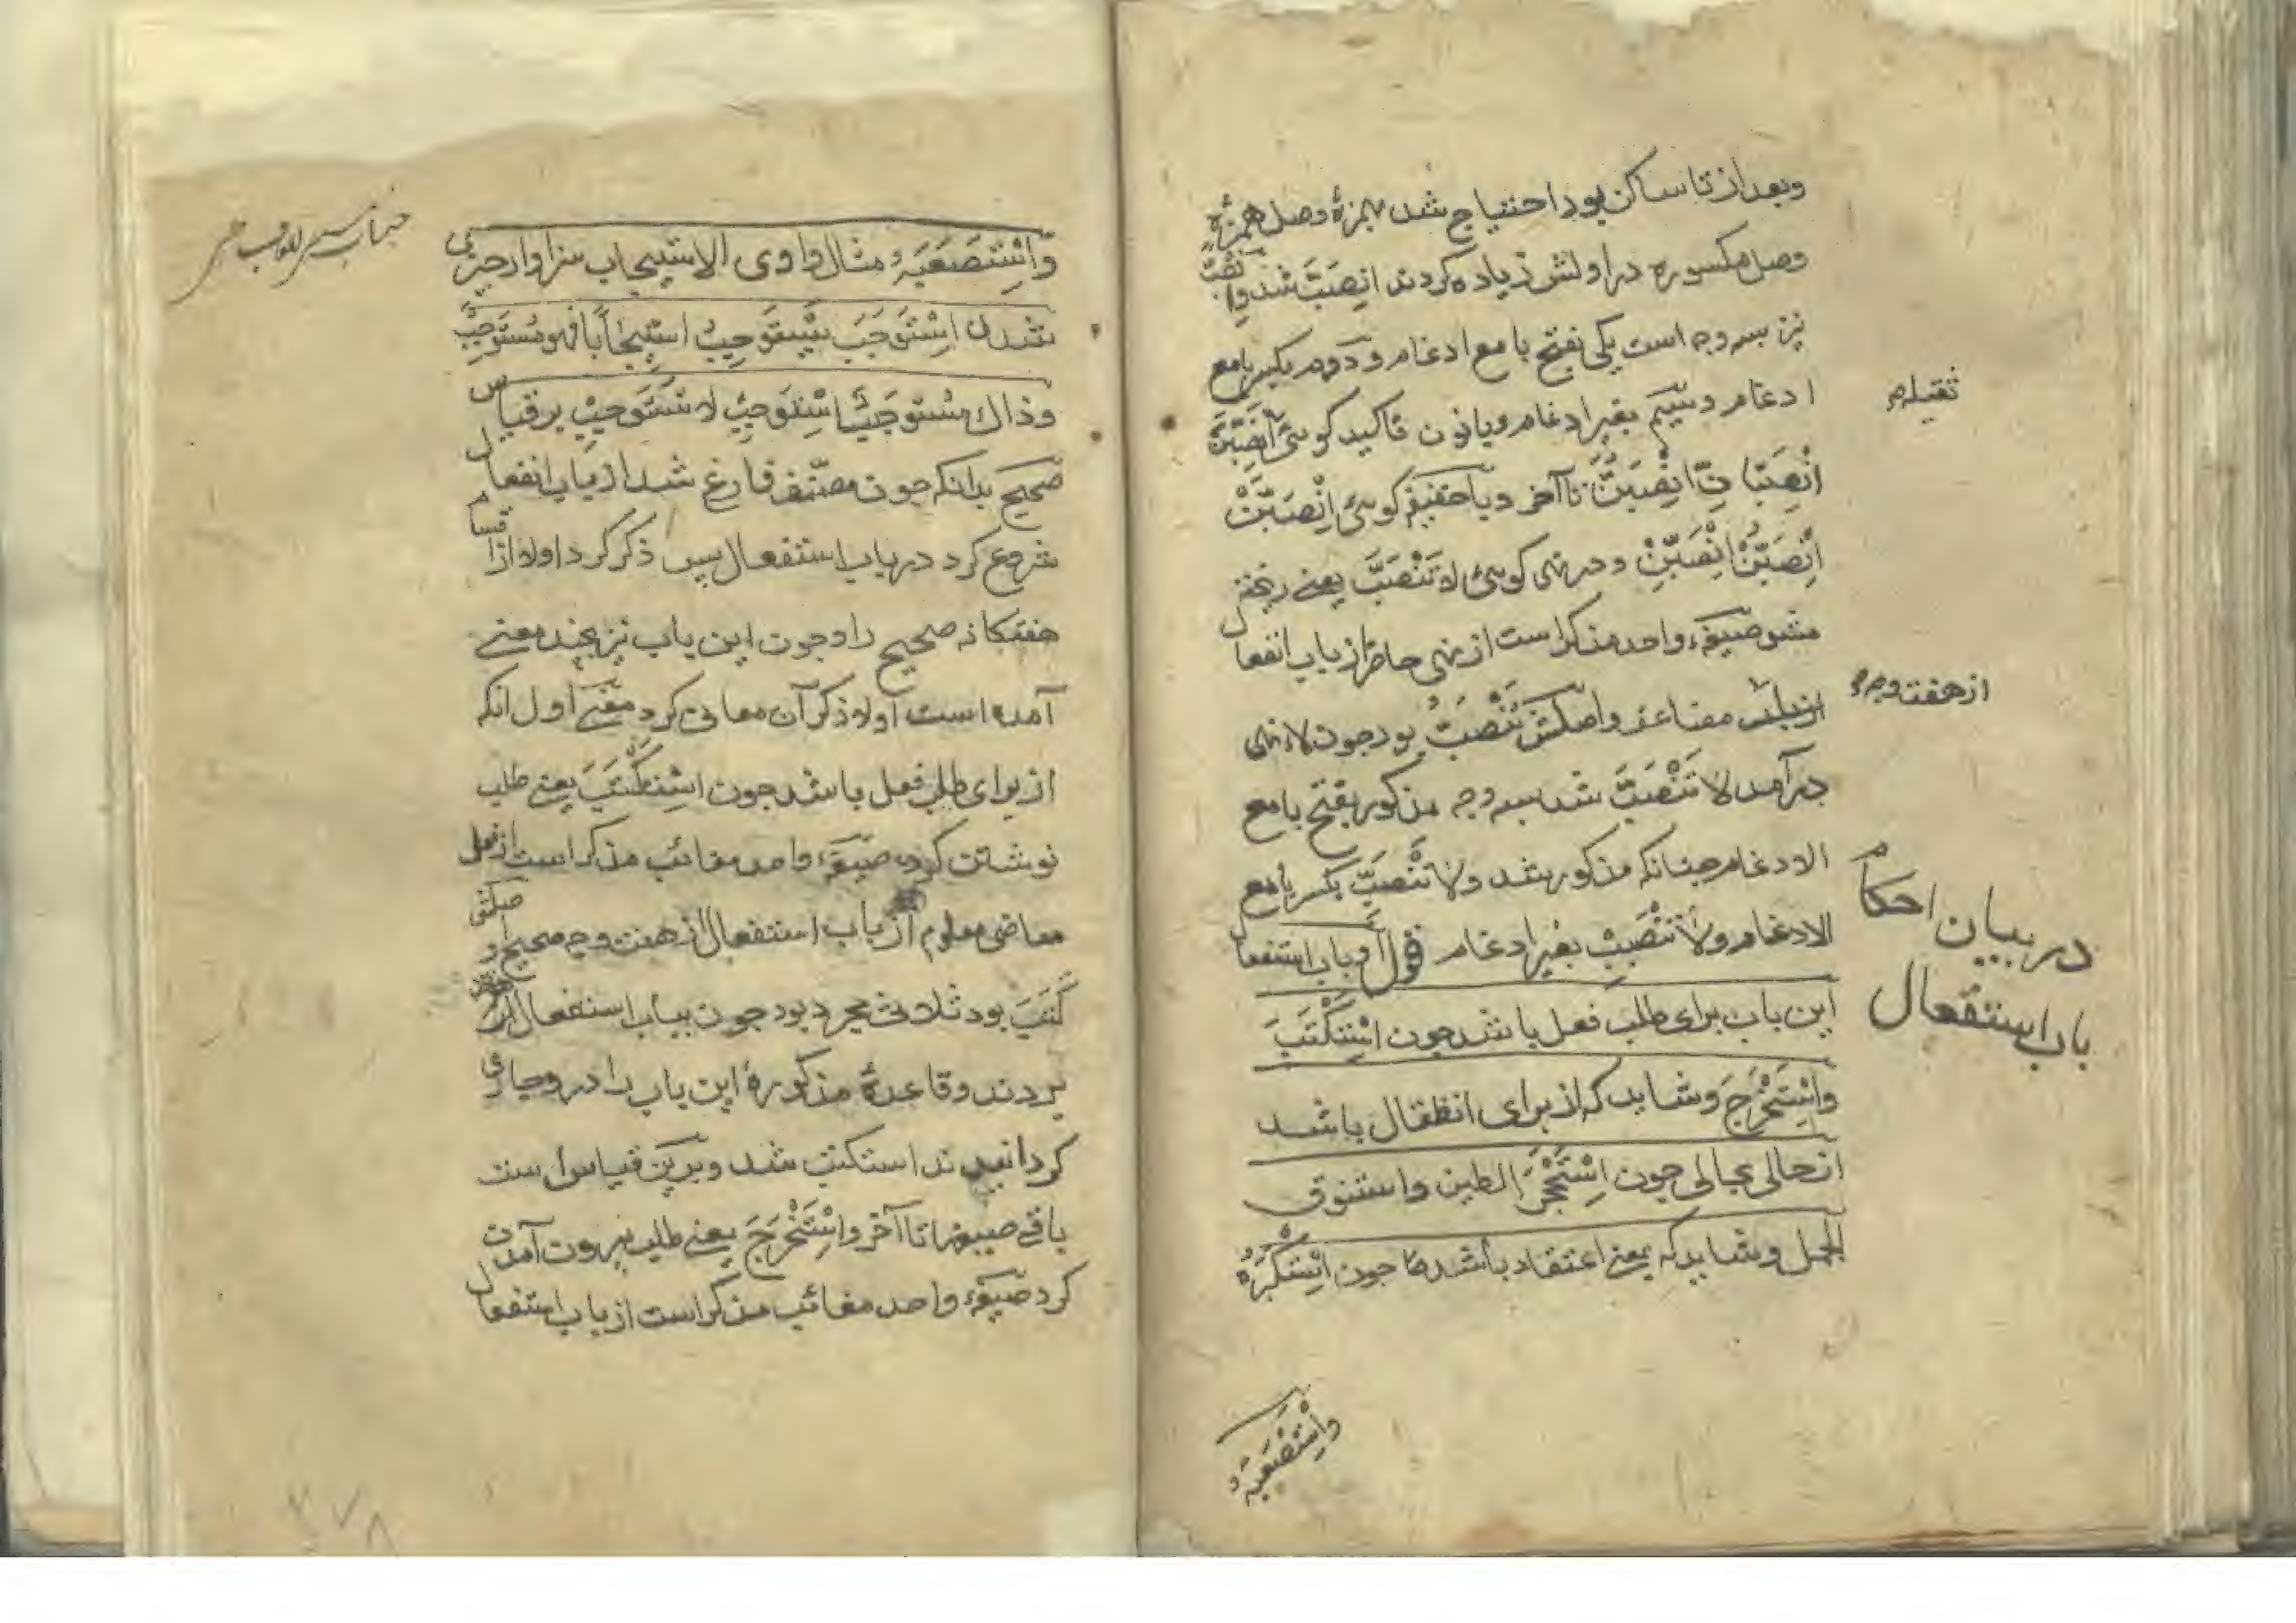 وبعد از تا ساکن بود احتیاج شد بهمزهٔ وصل همزهٔ
وصل مکسوره در اولش زیاده کردند انصَبَّ شد و
نیز بسه وجه است یکی بفتح با مع ادغام و دوم بکسر با مع
ادغام وسیم بغیر ادغام وبا نون تاکید کوئی اِنْصَبَّنَّ
ثقیله
اِنْصَبَّانِّ اِنْصَبُّنَّ تا آخر وبا خفیفه کوئی اِنْصَبَّنْ
اِنْصَبُّنْ اِنْصَبِّنْ و در نهی کوئی لا تَنْصَبَّ یعنے ریخته
مشو صیغهٔ واحد مذکر است از نهی حاضر از باب انفعال
از هفت وجه
مضاعف واصلش تَنْصَبُّ بود چون لاء نهی
درآمد لا تَنْصَبَّ شد بسه وجه مذکور بفتح با مع
الادغام چنانکه مذکور شد ولا تَنْصَبِّ بکسر با مع
الادغام ولا تَنْصَبِبْ بغیر ادغام قوله وباب استفعال
در بیان احکام
باب استفعال
این باب برای طلب فعل باشد چون اِسْتَکْتَبَ
واِسْتَخْرَجَ وشاید که از برای انتقال باشد
از حالی بحالی چون اِسْتَحْجَرَ الطین واستنوق
الجمل وشاید که بمعنے اعتقاد باشد چون اِسْتَکْبَرْتُهٗ
واِسْتَصْعَبْتُهٗ
واِسْتَصْعَبْتُهٗ مثال واوی الاستیجاب سزاوار چیزی
شدن اِسْتَوْجَبَ یَسْتَوْجِبُ استیجاباً فهو مُسْتَوْجِبٌ
وذاك مُسْتَوْجَبٌ اِسْتَوْجِبْ لا تَسْتَوْجِبْ بر قیاس
صحیح بدانکه چون مصنّف فارغ شد از باب انفعال
شروع کرد در باب استفعال پس ذکر کرد اولا از اقسام
هفتکانه صحیح را وچون این باب نیز بچند معنے
آمده است اولا ذکر آن معانی کرد معنے اول انکه
از برای طلب فعل باشد چون اِسْتَکْتَبَ یعنے طلب
نوشتن کرد صیغهٔ واحد مغائب مذکر است از فعل
ماضی معلوم از باب استفعال از هفت وجه صحیح و اصلش
کَتَبَ بود ثلاثی مجرد بود چون بباب استفعالش
بردند وقاعدهٔ مذکورهٔ این باب را در وجاری
کردانیدند استکتب شد وبرین قیاس است
باقے صیغها تا آخر واِسْتَخْرَجَ یعنے طلب بیرون آمدن
کرد صیغهٔ واحد مغائب مذکر است از باب استفعال
۳۷۸